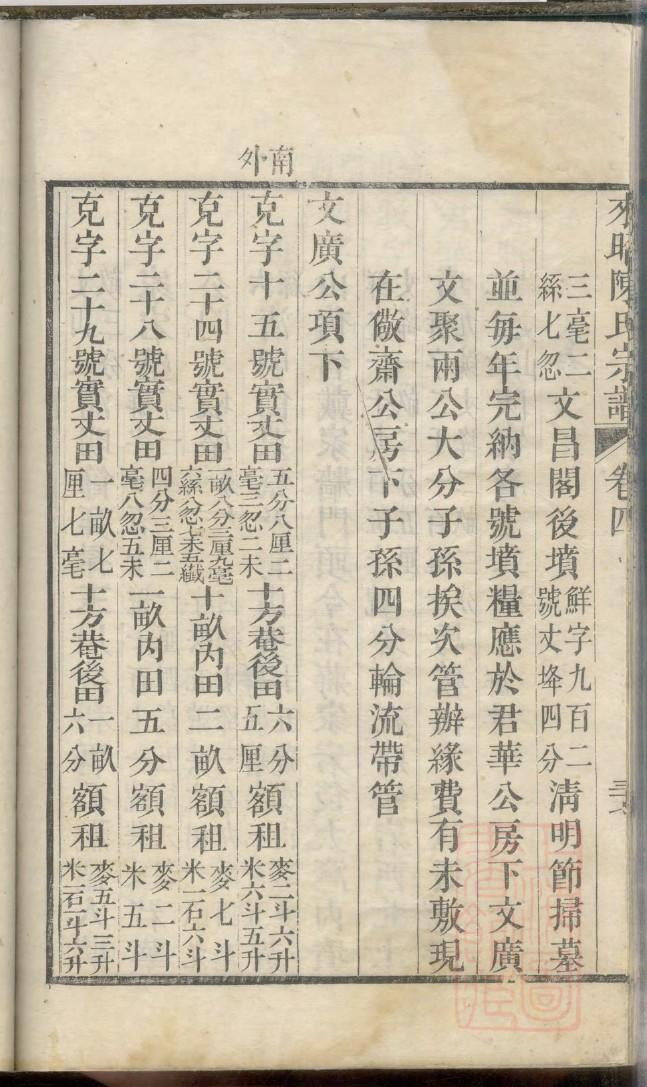 南外
來旸陳氏宗譜 卷四
三毫二絲七忽 文昌閣後墳 鮮字九百二號丈埄四分 淸明節掃墓
並每年完納各號墳糧應於君華公房下文廣
文聚兩公大分子孫挨次管辦緣費有未敷現
在儆齋公房下子孫四分輪流帶管
文廣公項下
克字十五號實丈田 五分八厘二毫三忽二未 十方菴後田 六分五厘 額租 麥二斗六升米六斗五升
克字二十四號實丈田 一畝八分三厘九毫六絲分忽七未五纖 十畝內田二畝額租 麥七斗米一石六斗
克字二十八號實丈田 四分三厘二毫八忽五未 一畝內田五分額租 麥二斗米五斗
克字二十九號實丈田 一畝七厘七毫 十方菴後田 一畝六分 額租 麥五斗三升米一石一斗六升